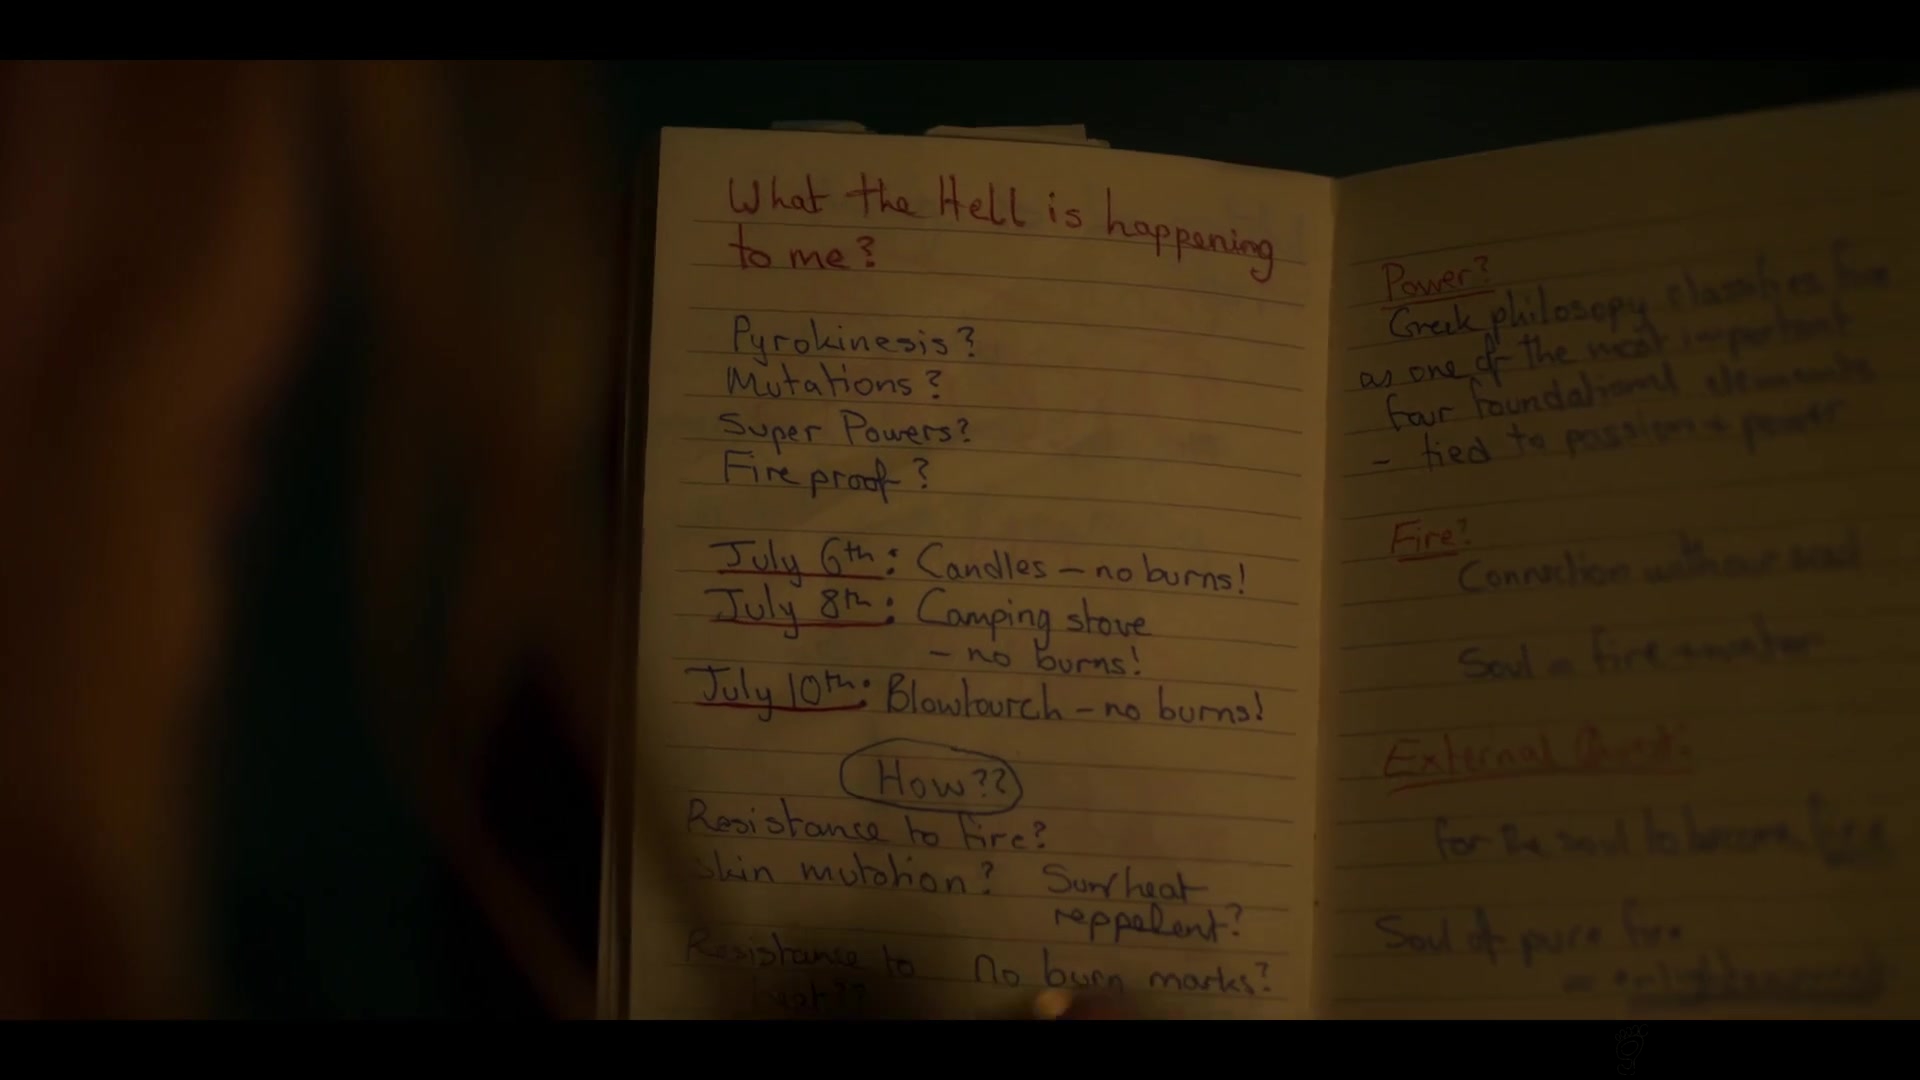 What the Hell is happening
to me?
Pyrokinesis?
Mutations?
Super Powers?
Fire proof?
July 6th: Candles - no burns!
July 8th: Camping stove
- no burns!
July 10th: Blowtourch - no burns!
How??
Resistance to fire?
skin mutation? Sun/heat
reppelent?
Resistance to no burn marks?
heat??
Power?
Greek philosopy classifies fire
as one of the most important
four foundational elements
- tied to passion + power
Fire?
Connection with our soul
Soul = fire + water
External Quest.
for the soul to become fire
Soul of pure fire
= enlightenment